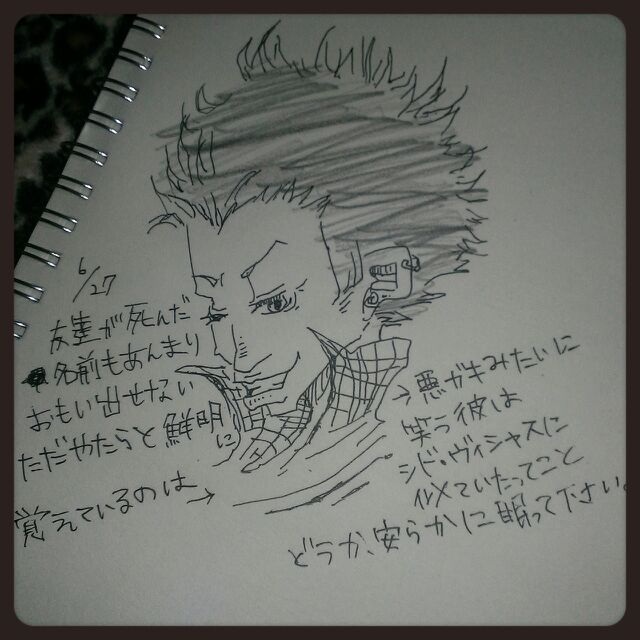 6/27
友達が死んだ
名前もあんまり
おもい出せない
ただやたらと鮮明に
覚えているのは→
→悪ガキみたいに
笑う彼は
シド・ヴィシャスに
似ていたってこと
どうか、安らかに眠って下さい。